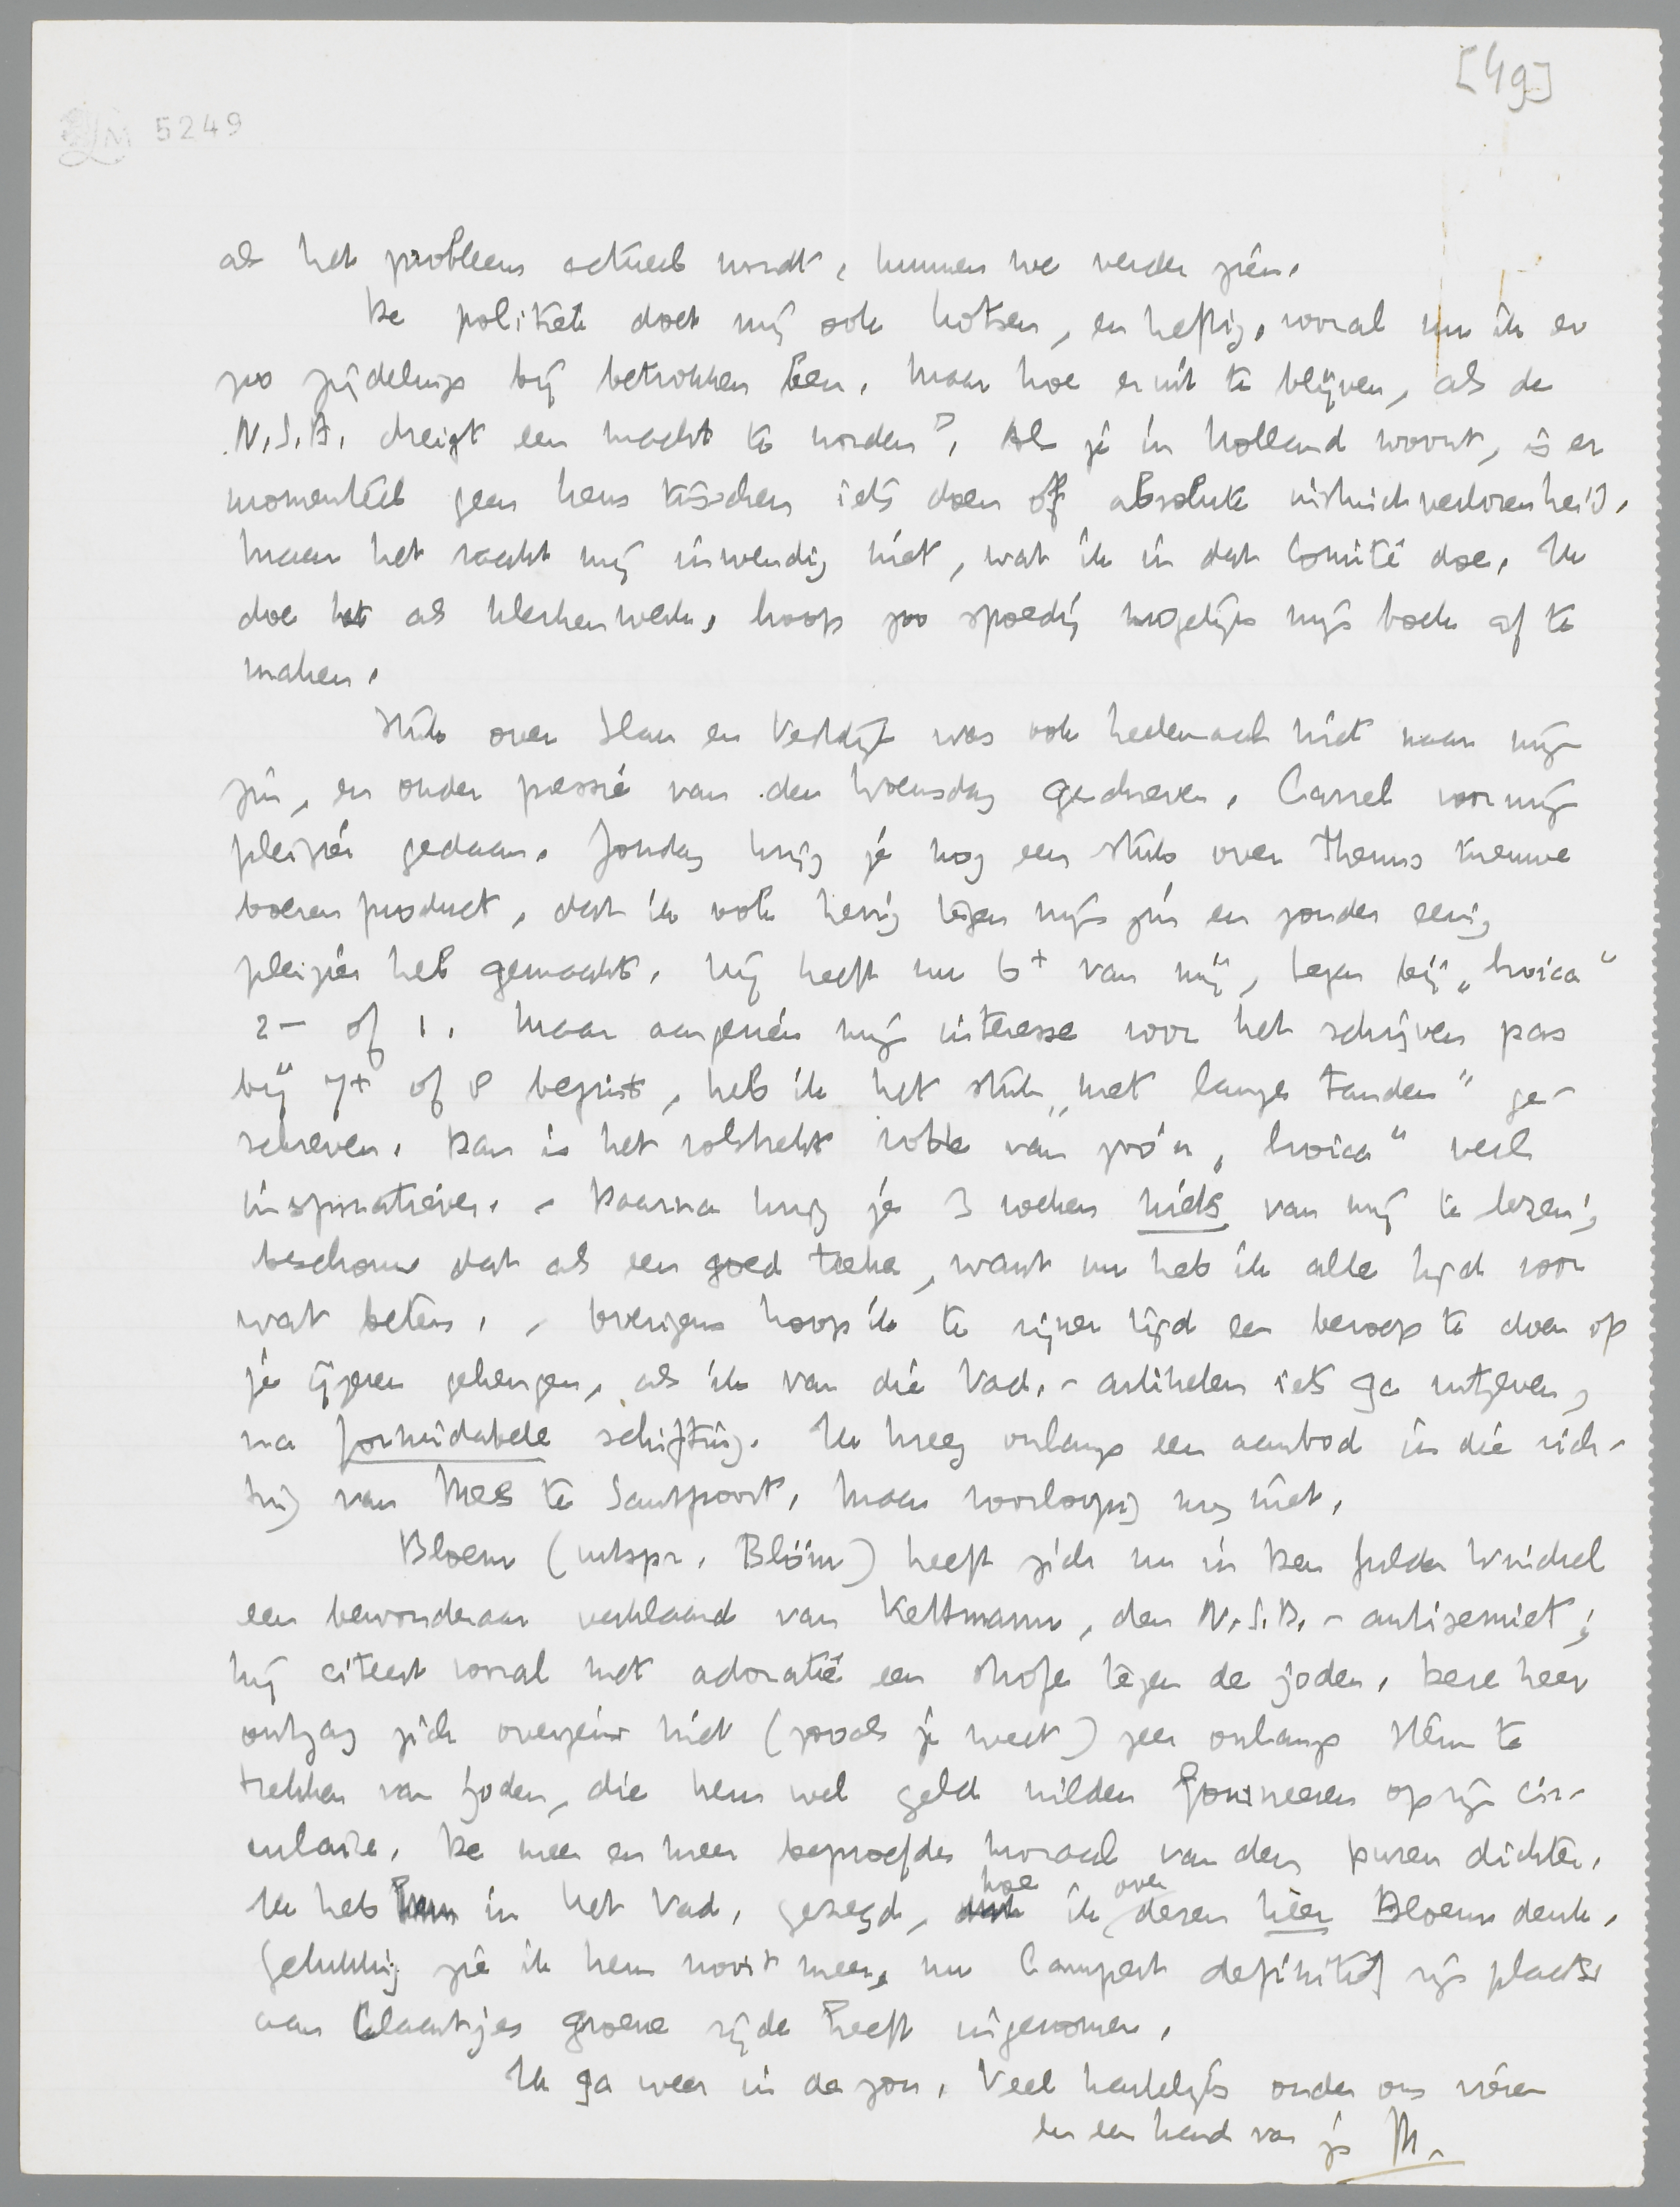 [49]
LM 5249
als het probleem actueel wordt, kunnen we verder zien.
De politiek doet mij ook kotsen, en heftig, vooral nu ik er
zoo zijdelings bij betrokken ben. Maar hoe eruit te blijven, als de
N.S.B. dreigt een macht te worden? Als je in Holland woont, is er
momenteel geen keus tusschen iets doen of absolute instinctverlorenheid.
Maar het raakt mij inwendig niet, wat ik in dat Comité doe. Ik
doe het als klerkenwerk, hoop zoo spoedig mogelijk mijn boek af te
maken.
Stuk over Slau en Vestdijk was ook heelemaal niet naar mijn
zin, en onder pressie van den Woensdag geschreven. Carrel voor mijn
pleizier gedaan. Zondag krijg je nog een stuk over Theuns nieuwe
boerenproduct, dat ik ook hevig tegen mijn zin en zonder eenig
pleizier heb gemaakt. Hij heeft nu 6+ van mij, tegen bij „Hroica"
2- of 1. Maar aangezien mijn interesse voor het schrijven pas
bij 7+ of 8 begint, heb ik het stuk „met lange tanden" ge-
schreven. Dan is het volstrekt votte van zoo'n „Hroica" veel
inspiratiever. - Daarna krijg je 3 weken niets van mij te lezen;
beschouw dat als een goed teeken, want nu heb ik alle tijd voor
wat beters. - Overigens hoop ik te zijner tijd een beroep te doen op
je ijzeren geheugen, als ik van die Vad.-artikelen iets ga uitgeven,
na formidabele schifting. Ik kreeg onlangs een aanbod in die rich-
ting van Mees te Santpoort. Maar voorloopig nog niet.
Bloem (uitspr. Blöm) heeft zich nu in Den Gulden Winckel
een bewonderaar verklaard van Kettmann, den N.S.B.-antisemiet;
hij citeert vooral met adoratie een strofe tegen de joden. Deze heer
ontzag zich overigens niet (zooals je weet) zeer onlangs steun te
trekken van joden, die hem wel geld wilden fourneeren op zijn cir-
culaire. De meer en meer beproefde moraal van den puren dichter.
Ik heb in het Vad. gezegd, hoe ik over dezen heer Bloem denk.
Gelukkig zie ik hem nooit meer, nu Campert definitief zijn plaats
aan Claartjes groene zijde heeft ingenomen.
Ik ga weer in de zon. Veel hartelijks onder ons vieren
en een hand van je M.